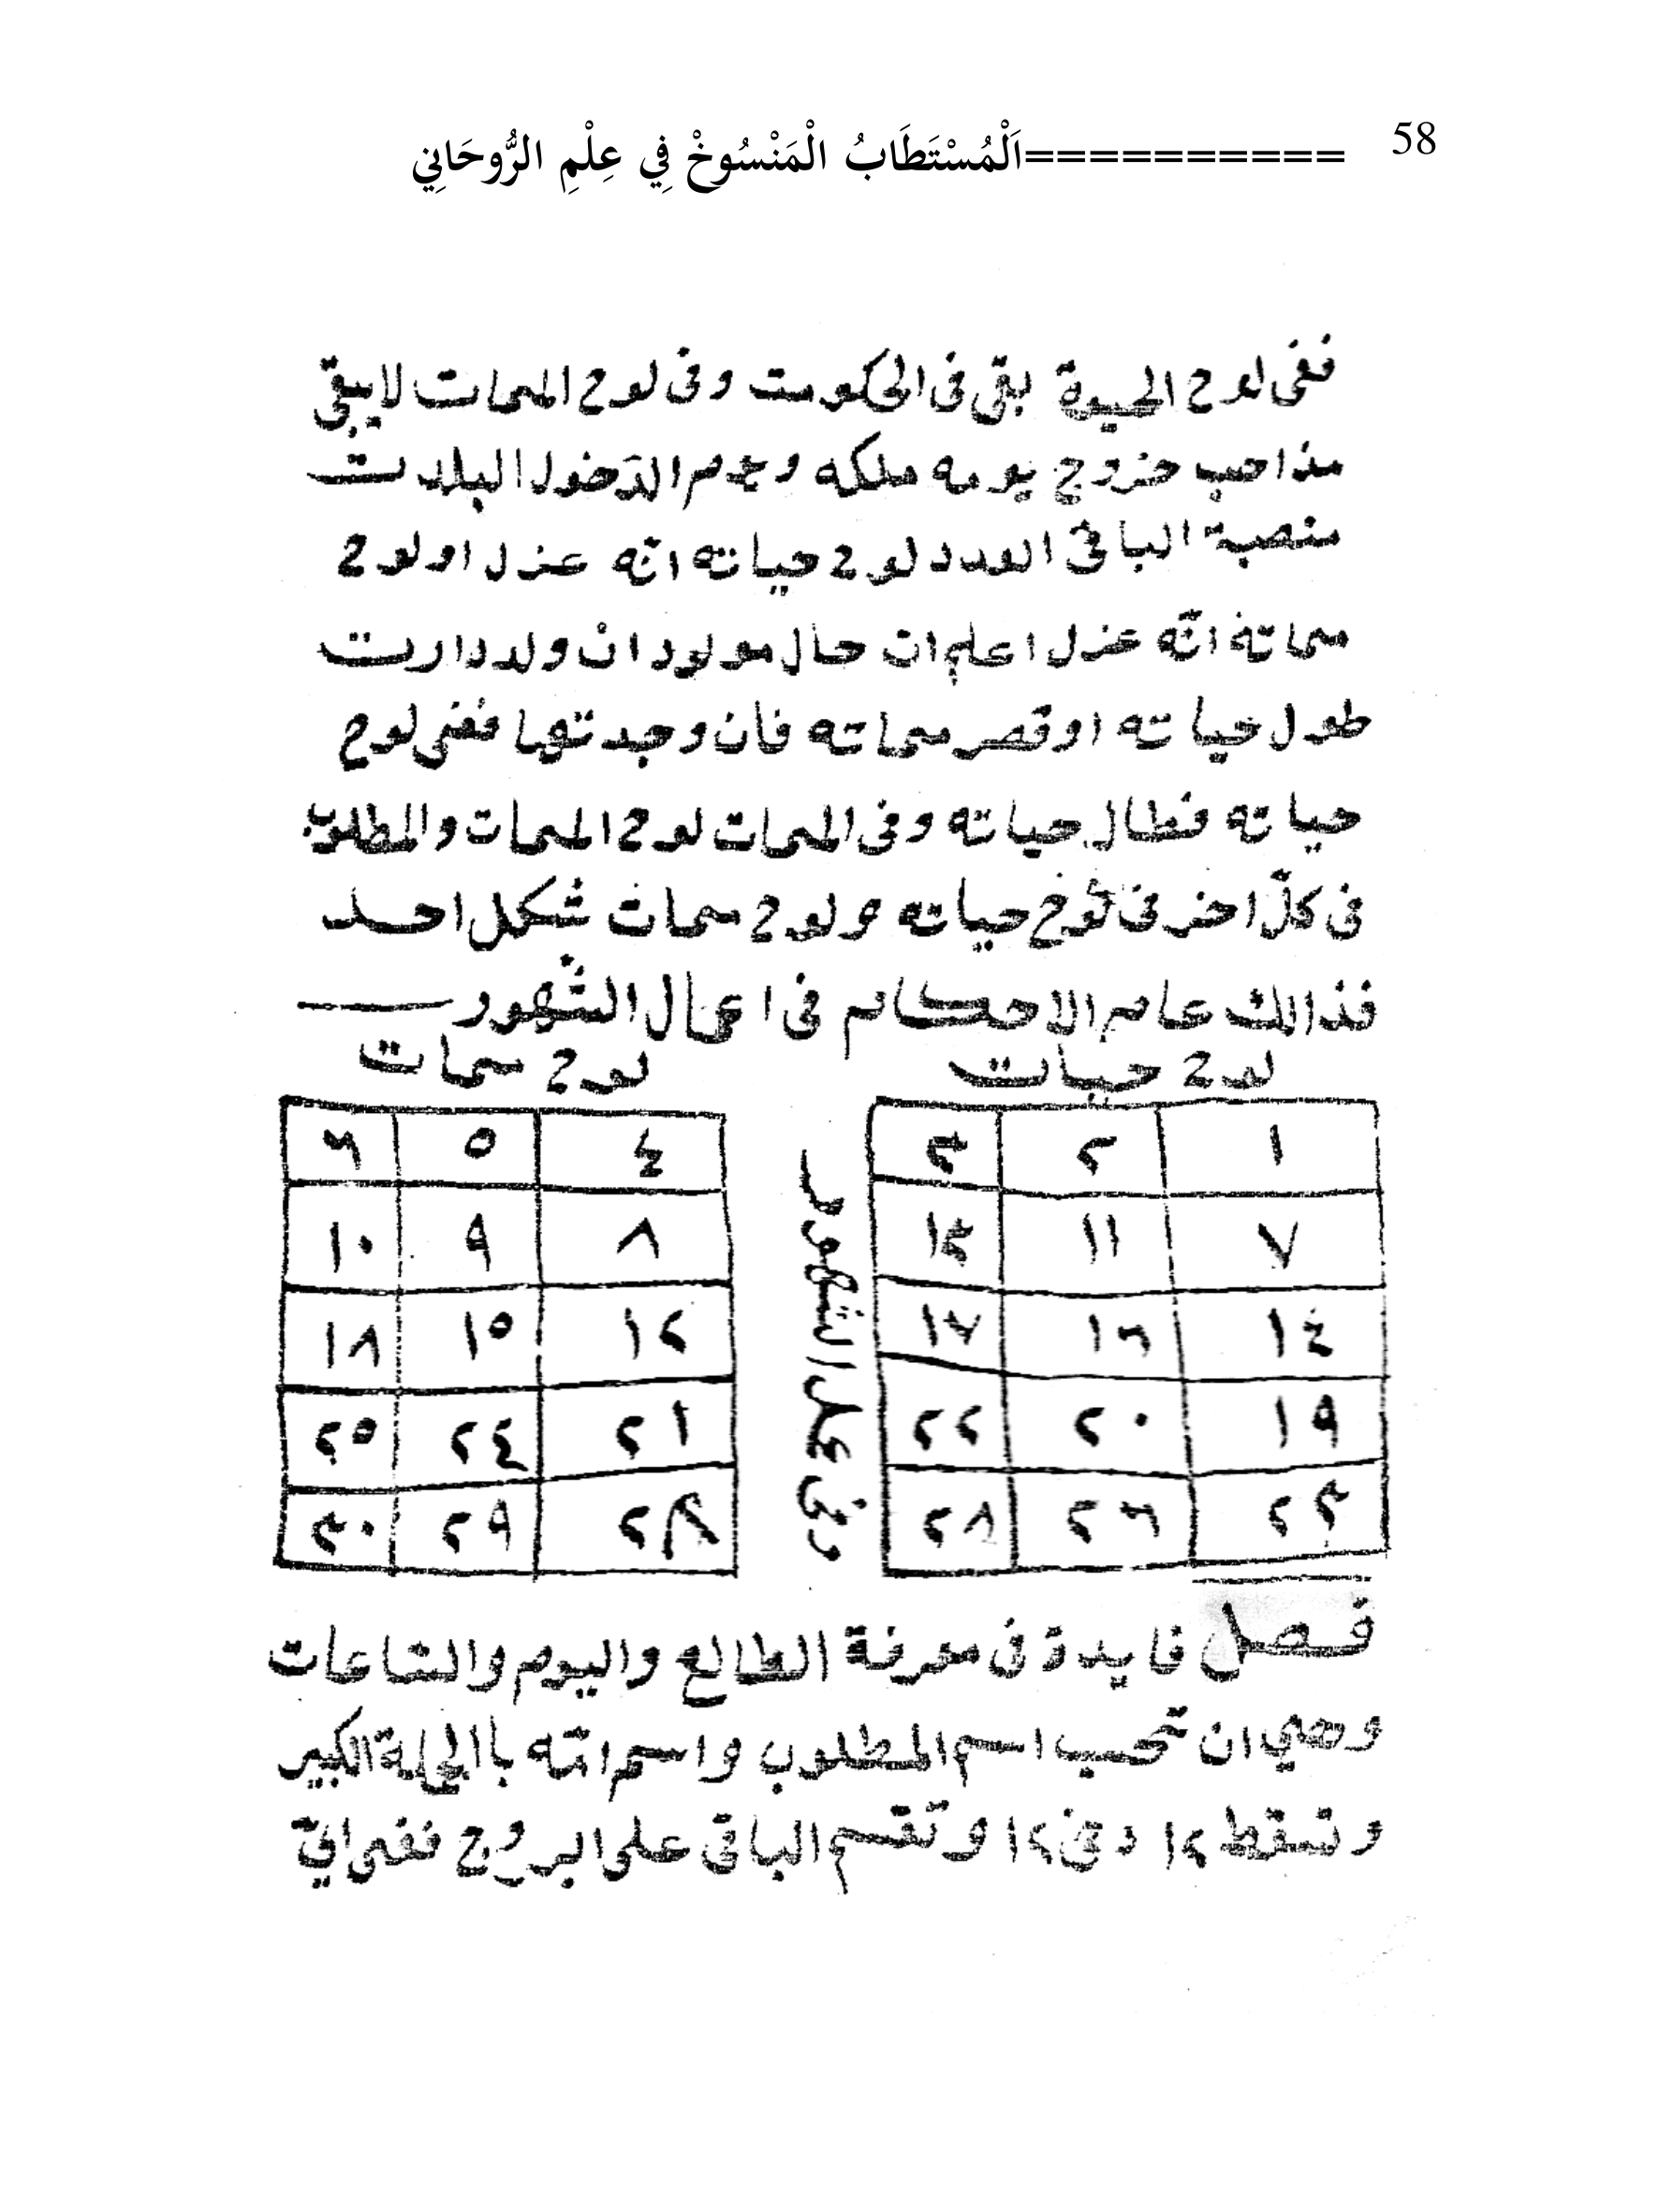 58
==========اَلْمُسْتَطَابُ الْمَنْسُوخْ فِي عِلْمِ الرُّوحَانِي
ففى لوح الحيوة بقى فى الحكومت وفى لوح الممات لايبقى
خروج يومه ملكه و الدخول البلدت
منصبة الباقى العدد لوح حياته انّه عزل او لوح
مماته انّه عزل اعلم ان حال مولود ان ولد دارت
طول حياته اوقصر مماته فان وجدتها ففى لوح
حياته فطال حياته وفى الممات لوح الممات والمطلوب
فى كلّ اخر فى لوح حياته ولوح ممات شكل احد
فذالك عام الاحكام فى اعمال الشهور
لوح حيات
لوح ممات
١ ٢ ٣
٧ ١١ ١٣
١٤ ١٦ ١٧
١٩ ٢٠ ٢٢
٢٣ ٢٦ ٢٨
على الشهور
٤ ٥ ٦
٨ ٩ ١٠
١٢ ١٥ ١٨
٢١ ٢٤ ٢٥
٢٩ ٣٠
فصل فايدة فى معرفة الطالع واليوم والساعات
وهي ان تحسب اسم المطلوب واسم امّه باالجملة الكبير
وتسقط ١٢ وتقسم الباقى على البروج ففى اىّ